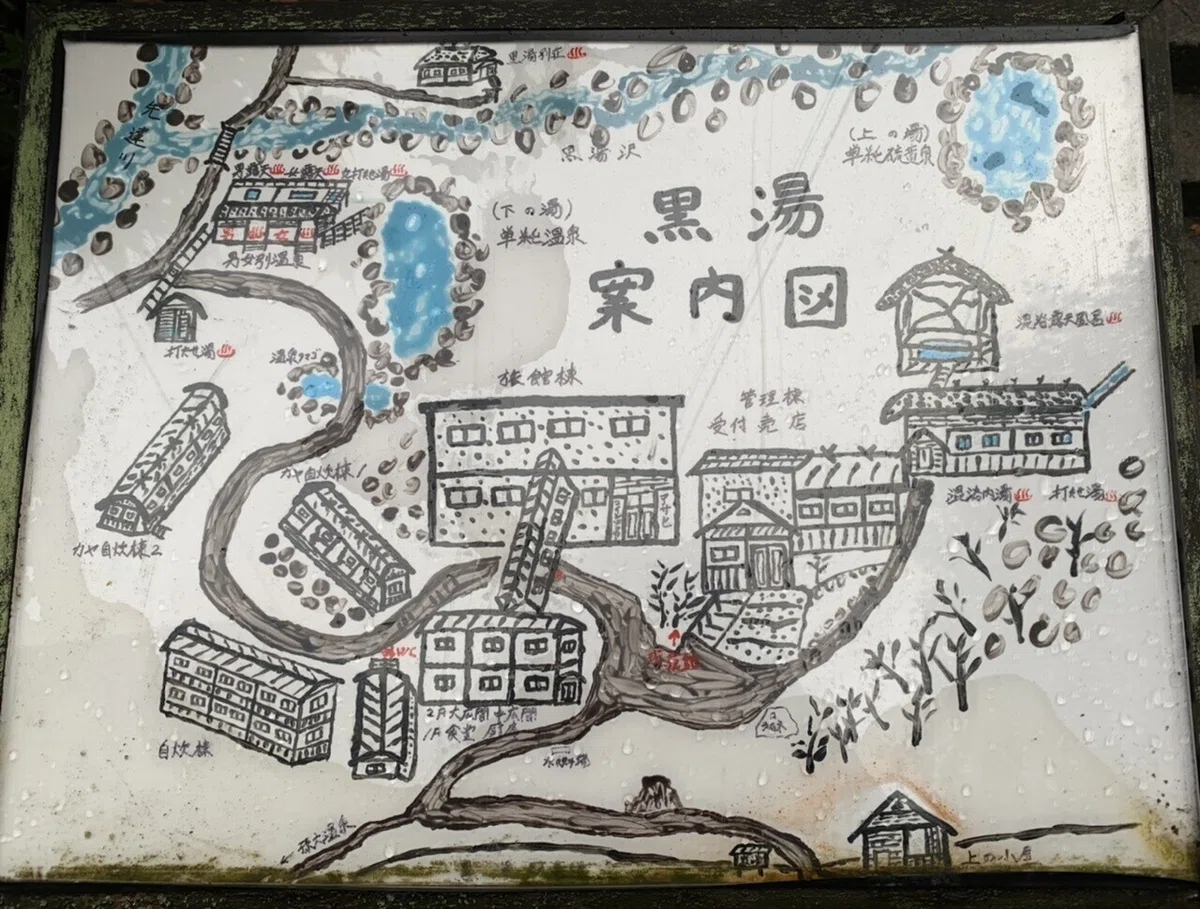 黒湯別荘
先達川
黒湯沢
(上の湯)
単純硫黄泉
男露天 女露天 女打たせ湯
男 女
男女別温泉
(下の湯)
単純温泉
黒湯
案内図
打たせ湯
温泉タマゴ
混浴露天風呂
旅館棟
管理棟
受付 売店
カヤ自炊棟1
混浴内湯 打たせ湯
カヤ自炊棟2
自炊棟
2F大広間 中広間
1F食堂
孫六温泉
上の小屋